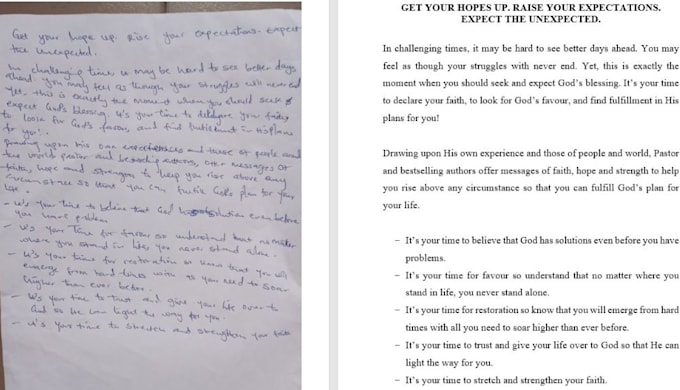 Get your hope up. Rise your expectations. expect
the unexpected.
In challenging times it may be hard to see better days
ahead. You may feel as though your struggles will never end
yet, this is exactly the moment when you should seek &
expect God's blessing. it's your time to your faith
to look for God's favour, and find in His plans
for you!
Drawing upon his own experiences and those of people and
the world pastor and authors, offer messages of
faith, hope and strength to help you rise above any
circumstances so that you can God's plan for your
life.
- it's your time to believe that God has solution even before
you have problem
- it's your time for favour so understand that no matter
where you stand in life, you never stand alone.
- it's your time for restoration so know that you will
emerge from hard times with as you need to soar
higher than ever before.
- it's your time to trust and give your life over to
God so he can light the way for you.
- it's your time to stretch and strengthen your faith
GET YOUR HOPES UP. RAISE YOUR EXPECTATIONS.
EXPECT THE UNEXPECTED.
In challenging times, it may be hard to see better days ahead. You may
feel as though your struggles with never end. Yet, this is exactly the
moment when you should seek and expect God's blessing. It's your time
to declare your faith, to look for God's favour, and find fulfillment in His
plans for you!
Drawing upon His own experience and those of people and world, Pastor
and bestselling authors offer messages of faith, hope and strength to help
you rise above any circumstance so that you can fulfill God's plan for
your life.
– It's your time to believe that God has solutions even before you have
problems.
– It's your time for favour so understand that no matter where you
stand in life, you never stand alone.
– It's your time for restoration so know that you will emerge from hard
times with all you need to soar higher than ever before.
– It's your time to trust and give your life over to God so that He can
light the way for you.
– It's your time to stretch and strengthen your faith.